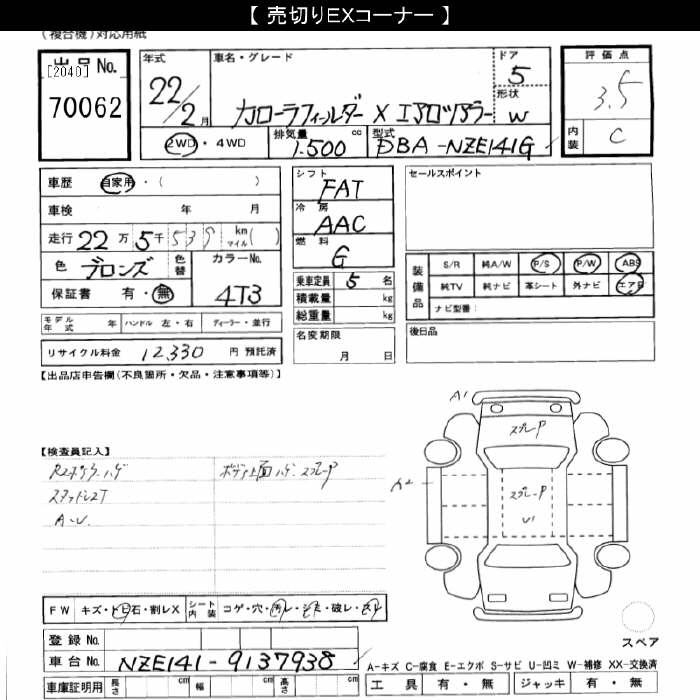 【 売切りEXコーナー 】
(複合機)対応用紙
出品No.
[2040]
70062
年式
22/2月
車名・グレード
カローラフィールダー X エアロツアラー
ドア
5
形状
W
評価点
3.5
内装
C
2WD・4WD
排気量
1.500 cc
型式
DBA-NZE141G
車歴 自家用・( )
車検 年 月
走行 22万5千539 km マイル( )
色 ブロンズ 色替
カラーNo.
4T3
保証書 有・無
モデル年式 年 ハンドル 左・右 ディーラー・並行
リサイクル料金 12,330 円 預託済
シフト
FAT
冷房
AAC
燃料
G
乗車定員 5 名
積載量 kg
総重量 kg
名変期限
月 日
セールスポイント
装備品
S/R 純A/W P/S P/W ABS
純TV 純ナビ 革シート 外ナビ エアB
ナビ型番:
後日品
【出品店申告欄(不良箇所・欠品・注意事項等)】
【検査員記入】
ボディ上面ハゲ スプレーP
スタッドレスT
A・U
A1
スプレーP
A2
スプレーP
U1
FW キズ・トビ石・割レX
シート内装 コゲ・穴・汚レ・シミ・破レ・スレ
登録No.
車台No. NZE141-9137938
車庫証明用 長さ cm 幅 cm 高さ cm
スペア
A-キズ C-腐食 E-エクボ S-サビ U-凹ミ W-補修 XX-交換済
工具 有・無 ジャッキ 有・無